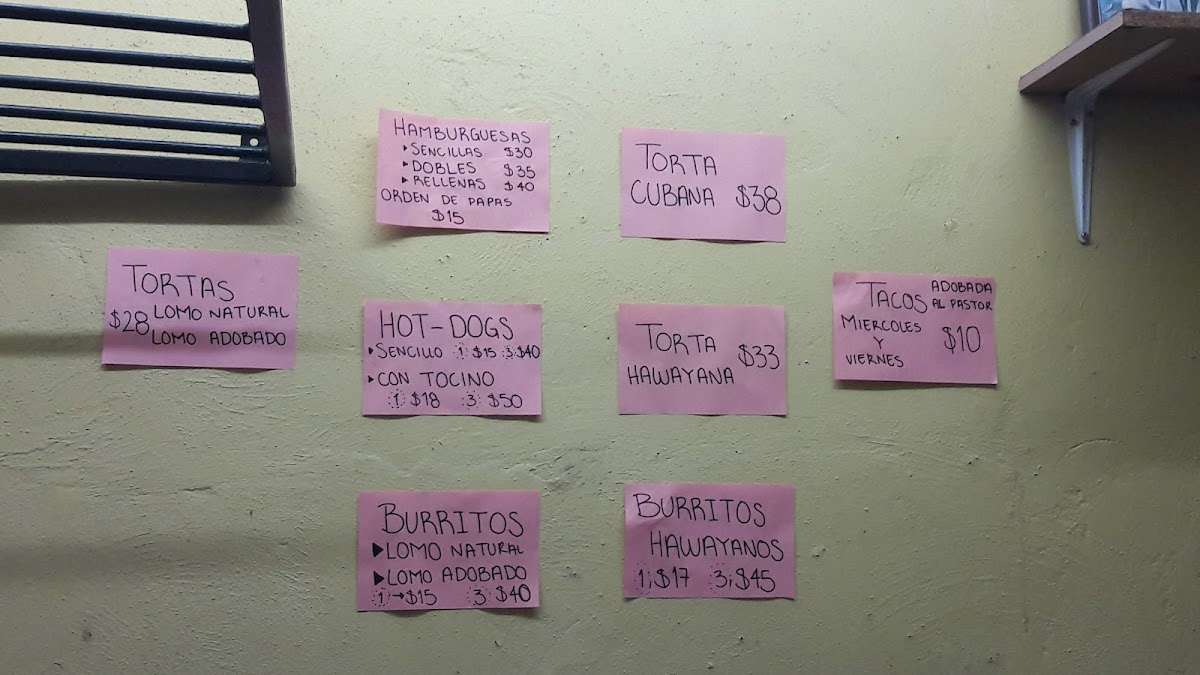 HAMBURGUESAS
▸SENCILLAS $30
▸DOBLES $35
▸RELLENAS $40
ORDEN DE PAPAS
$15
TORTA
CUBANA $38
TORTAS
$28 LOMO NATURAL
LOMO ADOBADO
HOT-DOGS
▸SENCILLO 1 $15 3 $40
▸CON TOCINO
1 $18 3 $50
TORTA $33
HAWAYANA
TACOS ADOBADA
AL PASTOR
MIERCOLES $10
Y
VIERNES
BURRITOS
▶LOMO NATURAL
▶LOMO ADOBADO
1→$15 3 $40
BURRITOS
HAWAYANOS
1;$17 3;$45